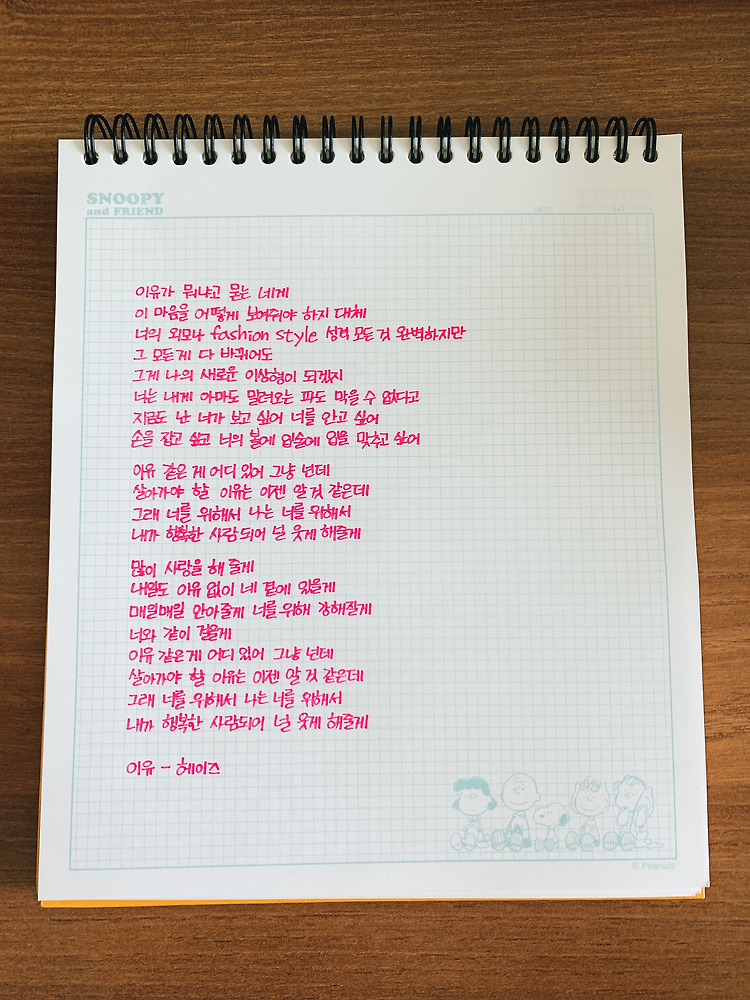 SNOOPY
and FRIEND
DATE
NO.
이유가 뭐냐고 묻는 네게
이 마음을 어떻게 보여줘야 하지 대체
너의 외모나 fashion style 성격 모든 것 완벽하지만
그 모든게 다 바뀌어도
그게 나의 새로운 이상형이 되겠지
너는 내게 아마도 밀려오는 파도 막을 수 없다고
지금도 난 너가 보고 싶어 너를 안고 싶어
손을 잡고 싶고 너의 볼에 입술에 입을 맞추고 싶어
이유 같은 게 어디 있어 그냥 넌데
살아가야 할 이유는 이젠 알 것 같은데
그래 너를 위해서 나는 너를 위해서
내가 행복한 사람되어 널 웃게 해줄게
많이 사랑을 해 줄게
내일도 이유 없이 네 곁에 있을게
매일매일 안아줄게 너를 위해 강해질게
너와 같이 걸을게
이유 같은 게 어디 있어 그냥 넌데
살아가야 할 이유는 이젠 알 것 같은데
그래 너를 위해서 나는 너를 위해서
내가 행복한 사람되어 널 웃게 해줄게
이유 - 헤이즈
© Peanuts